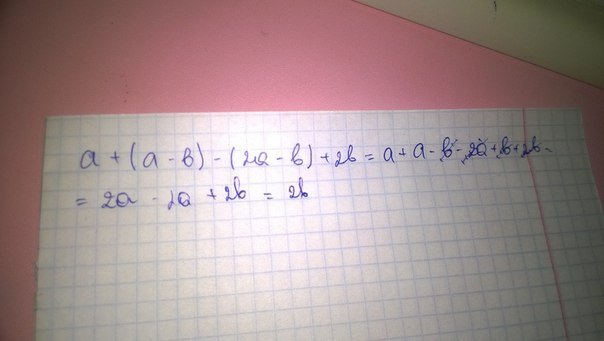 a + (a - b) - (2a - b) + 2b = a + a - b - 2a + b + 2b =
= 2a - 2a + 2b = 2b